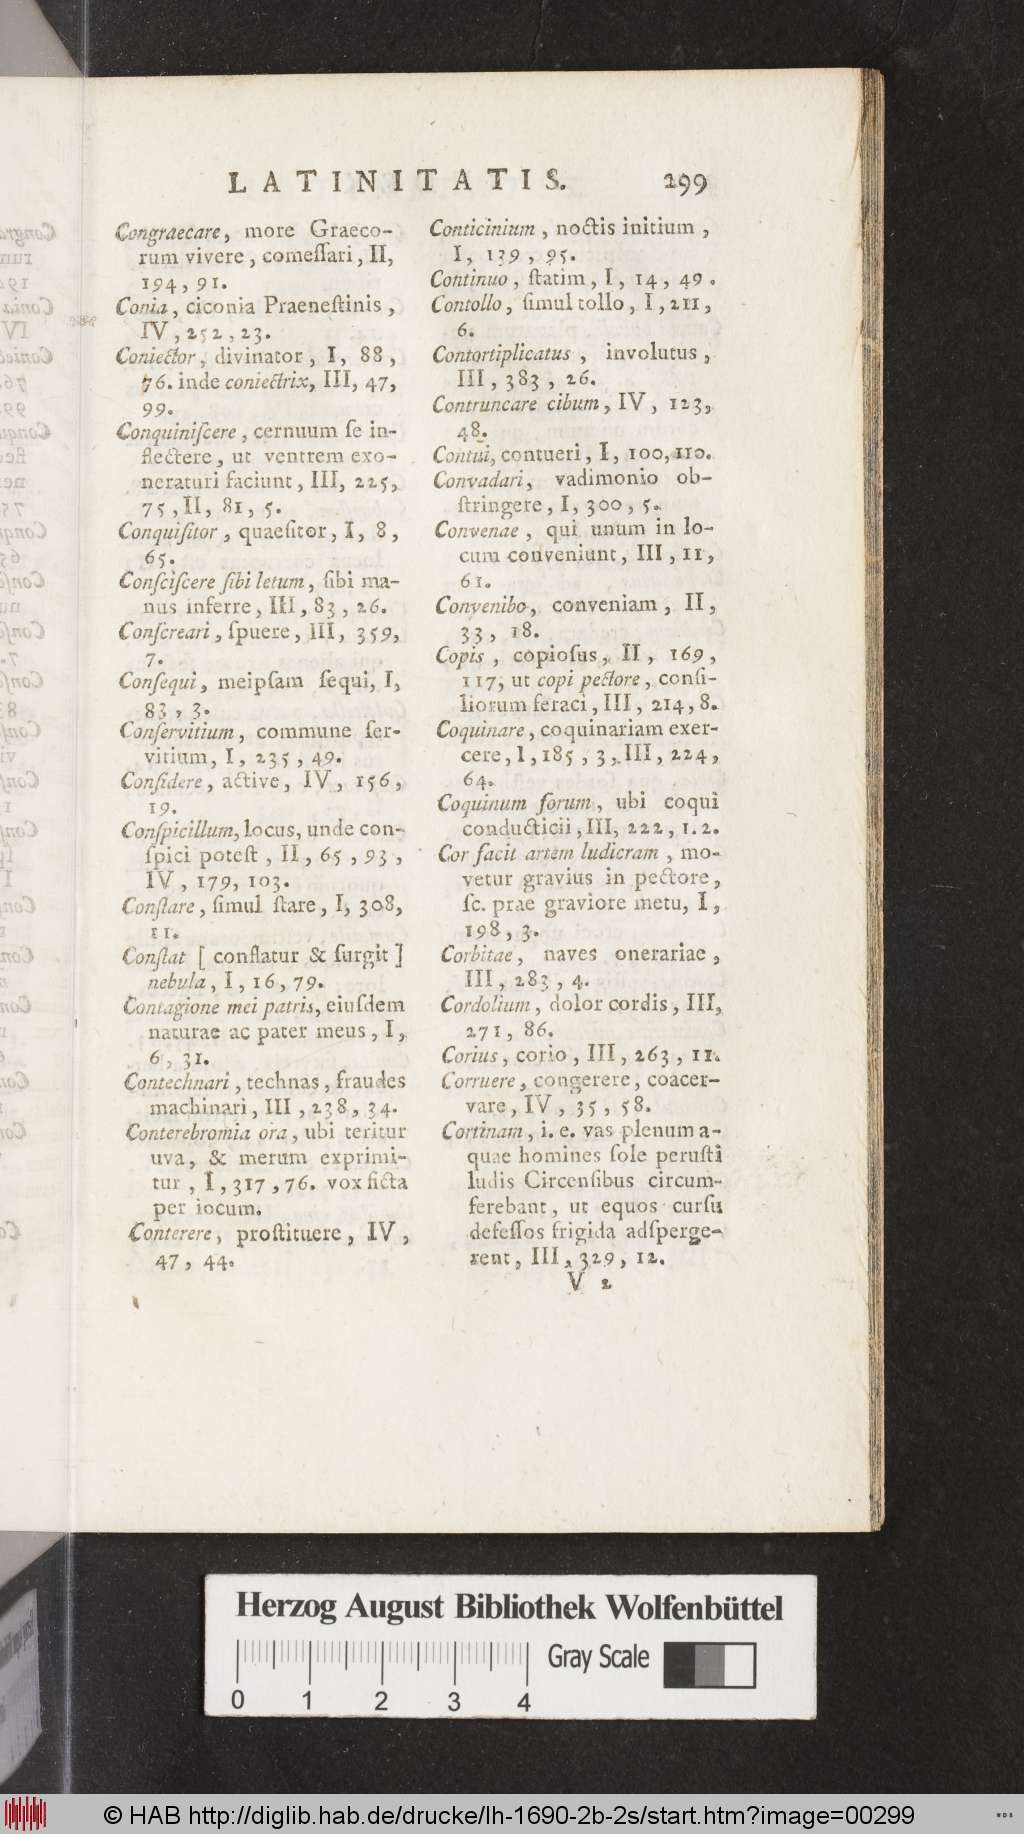 LATINITATIS. 299
Congraecare, more Graeco-
rum vivere, comeſſari, II,
194, 91.
Conia, ciconia Praeneſtinis,
IV, 252, 23.
Coniector, divinator, I, 88,
76. inde coniectrix, III, 47,
99.
Conquiniſcere, cernuum ſe in-
flectere, ut ventrem exo-
neraturi faciunt, III, 225,
75, II, 81, 5.
Conquiſitor, quaeſitor, I, 8,
65.
Conſciſcere ſibi letum, ſibi ma-
nus inferre, III, 83, 26.
Conſcreari, ſpuere, III, 359,
7.
Conſequi, meipſam ſequi, I,
83, 3.
Conſervitium, commune ſer-
vitium, I, 235, 49.
Conſidere, active, IV, 156,
19.
Conſpicillum, locus, unde con-
ſpici poteſt, II, 65, 93,
IV, 179, 103.
Conſtare, ſimul ſtare, I, 308,
11.
Conſtat [ conflatur & ſurgit ]
nebula, I, 16, 79.
Contagione mei patris, eiuſdem
naturae ac pater meus, I,
6, 31.
Contechnari, technas, fraudes
machinari, III, 238, 34.
Conterebromia ora, ubi teritur
uva, & merum exprimi-
tur, I, 317, 76. vox ficta
per iocum.
Conterere, proſtituere, IV,
47, 44.
Conticinium, noctis initium,
I, 139, 95.
Continuo, ſtatim, I, 14, 49.
Contollo, ſimul tollo, I, 211,
6.
Contortiplicatus, involutus,
III, 383, 26.
Contruncare cibum, IV, 123,
48.
Contui, contueri, I, 100, 110.
Convadari, vadimonio ob-
ſtringere, I, 300, 5.
Convenae, qui unum in lo-
cum conveniunt, III, 11,
61.
Convenibo, conveniam, II,
33, 18.
Copis, copioſus, II, 169,
117, ut copi pectore, conſi-
liorum feraci, III, 214, 8.
Coquinare, coquinariam exer-
cere, I, 185, 3, III, 224,
64.
Coquinum forum, ubi coqui
conducticii, III, 222, 1. 2.
Cor facit artem ludicram, mo-
vetur gravius in pectore,
ſc. prae graviore metu, I,
198, 3.
Corbitae, naves onerariae,
III, 283, 4.
Cordolium, dolor cordis, III,
271, 86.
Corius, corio, III, 263, 11.
Corruere, congerere, coacer-
vare, IV, 35, 58.
Cortinam, i. e. vas plenum a-
quae homines ſole peruſti
ludis Circenſibus circum-
ferebant, ut equos curſu
defeſſos frigida adſperge-
rent, III, 329, 12.
V 2
Herzog August Bibliothek Wolfenbüttel
Gray Scale
0 1 2 3 4
© HAB http://diglib.hab.de/drucke/lh-1690-2b-2s/start.htm?image=00299